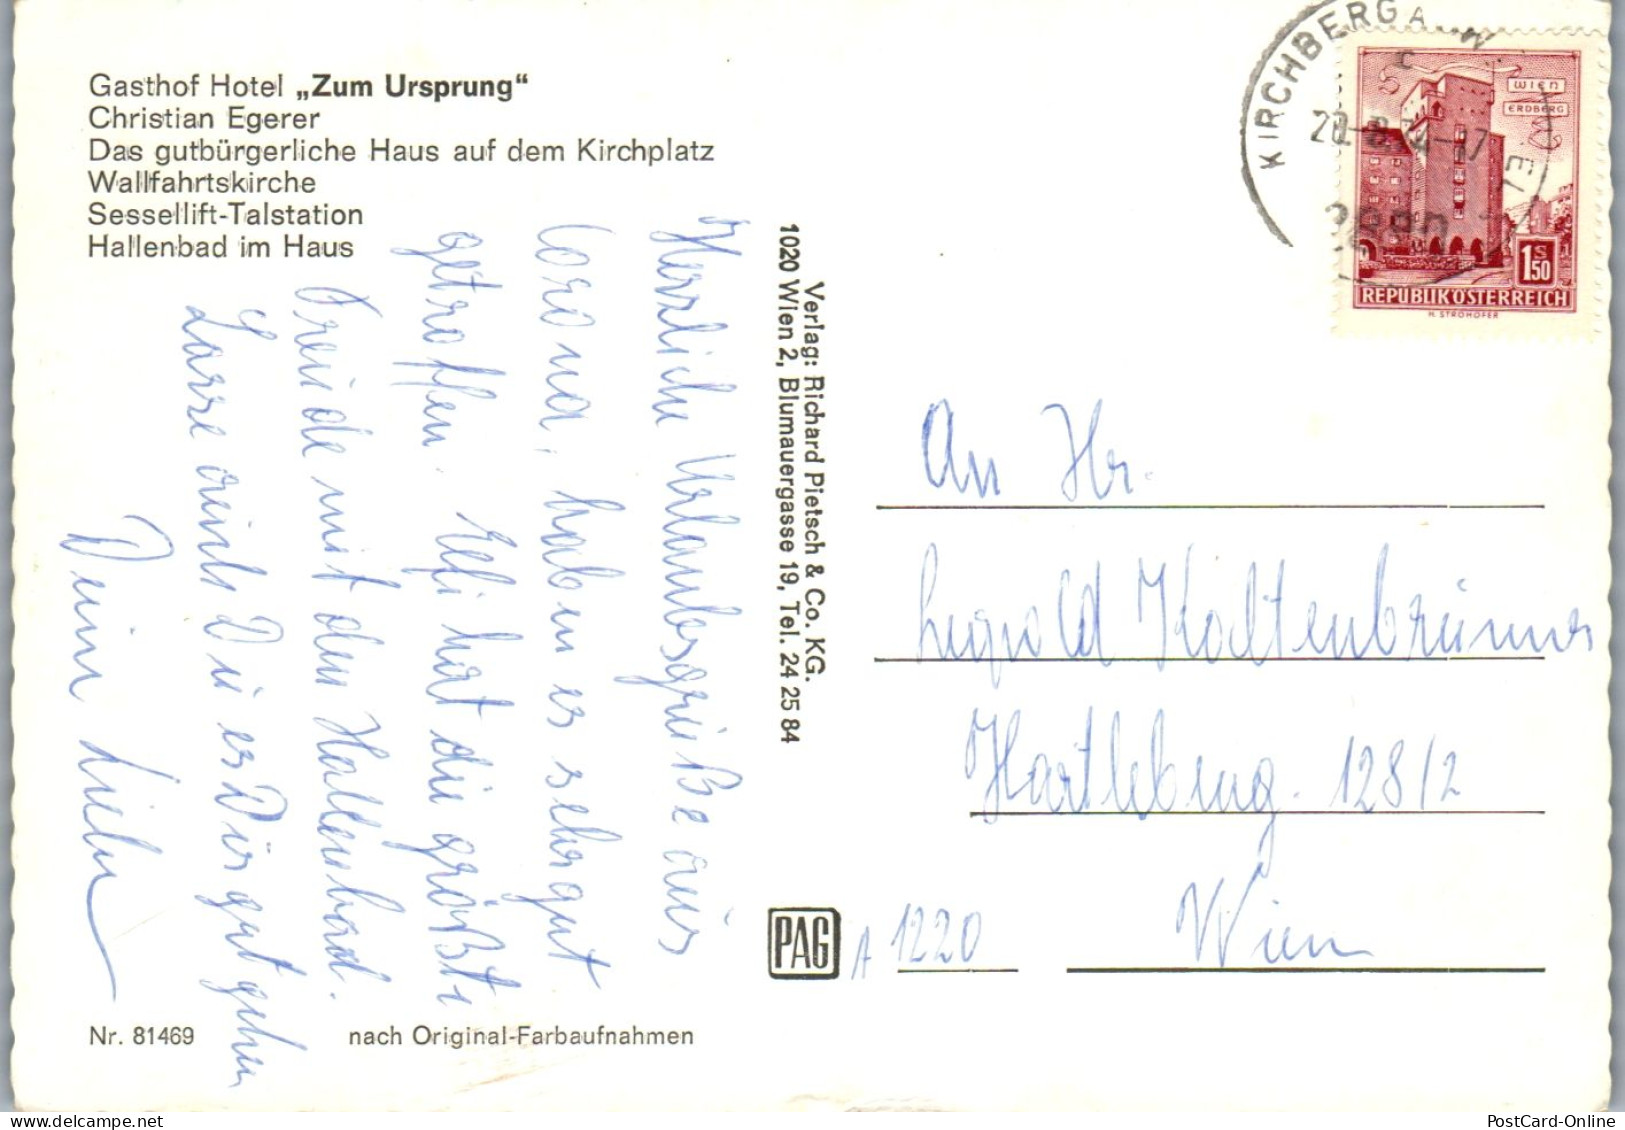 Gasthof Hotel „Zum Ursprung“
Christian Egerer
Das gutbürgerliche Haus auf dem Kirchplatz
Wallfahrtskirche
Sessellift-Talstation
Hallenbad im Haus
Herzliche Urlaubsgrüße aus
Corona, haben es sehr gut
getroffen. Elfi hat die größte
Freude mit dem Hallenbad.
Lasse auch Du es Dir gut gehen
Deine
Nr. 81469
nach Original-Farbaufnahmen
Verlag: Richard Pietsch & Co. KG.
1020 Wien 2, Blumauergasse 19, Tel. 24 25 84
PAG
KIRCHBERG A. WECHSEL
2880
WIEN
ERDBERG
1S50
REPUBLIK ÖSTERREICH
H. STROHOFER
An Hr.
Leopold Kaltenbrunner
Hartlebeng. 128/2
A 1220 Wien
PostCard-Online